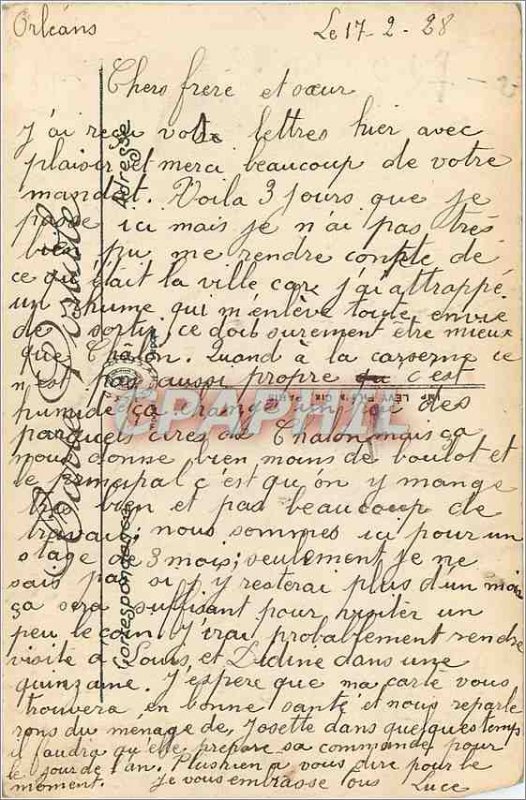 Orléans Le 17-2-28
Chers frère et sœur
J'ai reçu vos lettres hier avec
plaisir et merci beaucoup de votre
mandat. Voila 3 jours que je
ici mais je n'ai pas très
bien pu me rendre compte de
ce qu'était la ville car j'ai attrappé
un rhume qui m'enlève toute envie
de sortir, ce doit surement être mieux
que Châlon. Quand à la caserne ce
n'est pas aussi propre c'est
humide ça change un peu des
parquets cirés de Chalon mais ça
nous donne bien moins de boulot et
le principal c'est qu'on y mange
très bien et pas beaucoup de
travail; nous sommes ici pour un
stage de 3 mois; seulement je ne
sais pas si j'y resterai plus d'un mois
ça sera suffisant pour visiter un
peu le coin. J'irai probablement rendre
visite à Louis, et Didine dans une
quinzaine. J'espère que ma carte vous
trouvera en bonne santé et nous reparle
rons du ménage de Josette dans quelques temps
il faudra qu'elle prépare sa commande pour
le jour de l'an. Plus rien à vous dire pour le
moment. Je vous embrasse tous Luce
Carte Postale
Correspondance
Adresse
CPAPHIL